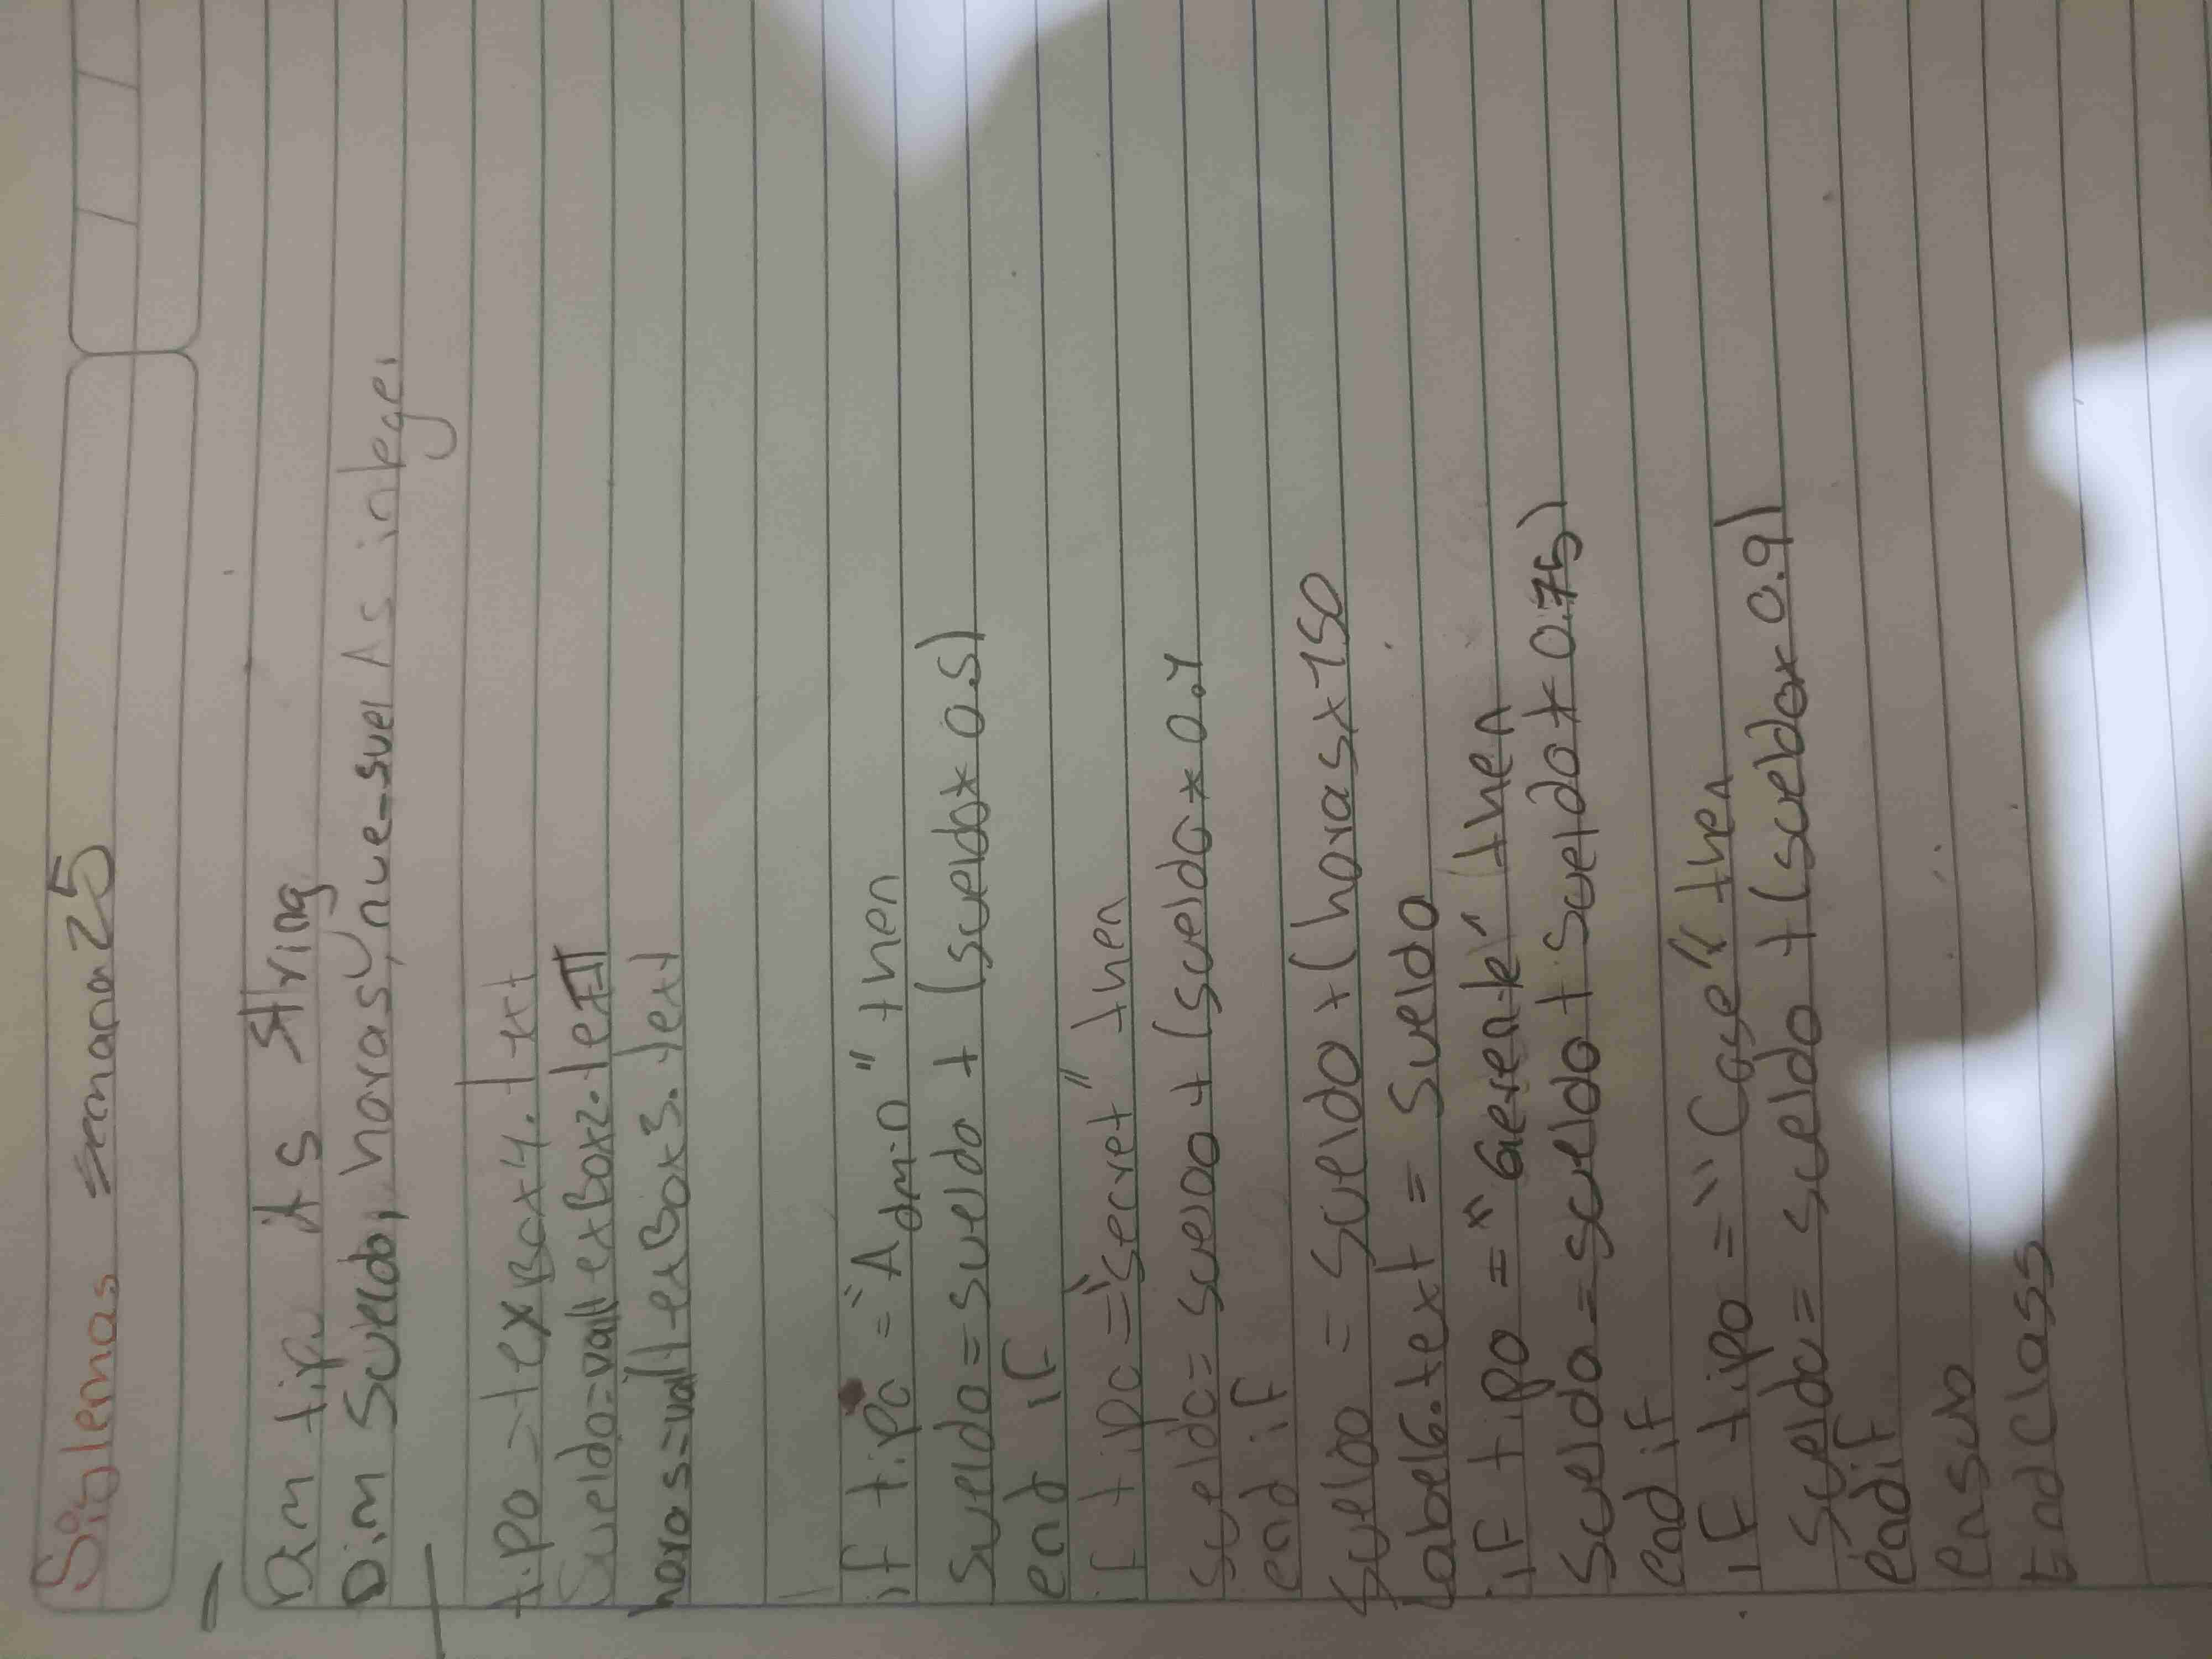 Sislemas semana 25
Dim tipo As string
Dim Sueldo, horas, nue_suel As integer
tipo = texBox4.txt
Sueldo=val texBox2.text
horas=val texBox3.text
if tipo = "Admin" then
Sueldo = sueldo + (sueldo* 0.5)
end if
if tipo = "secret" then
sueldo= sueldo + (sueldo * 0.7
end if
sueldo = sueldo + (horas x 150
label6.text = Sueldo
if tipo = "Gerente" then
Sueldo = sueldo + sueldo * 0.75)
end if
if tipo = "Caje" then
Sueldo = sueldo + (sueldo* 0.9)
endif
ensub
End class